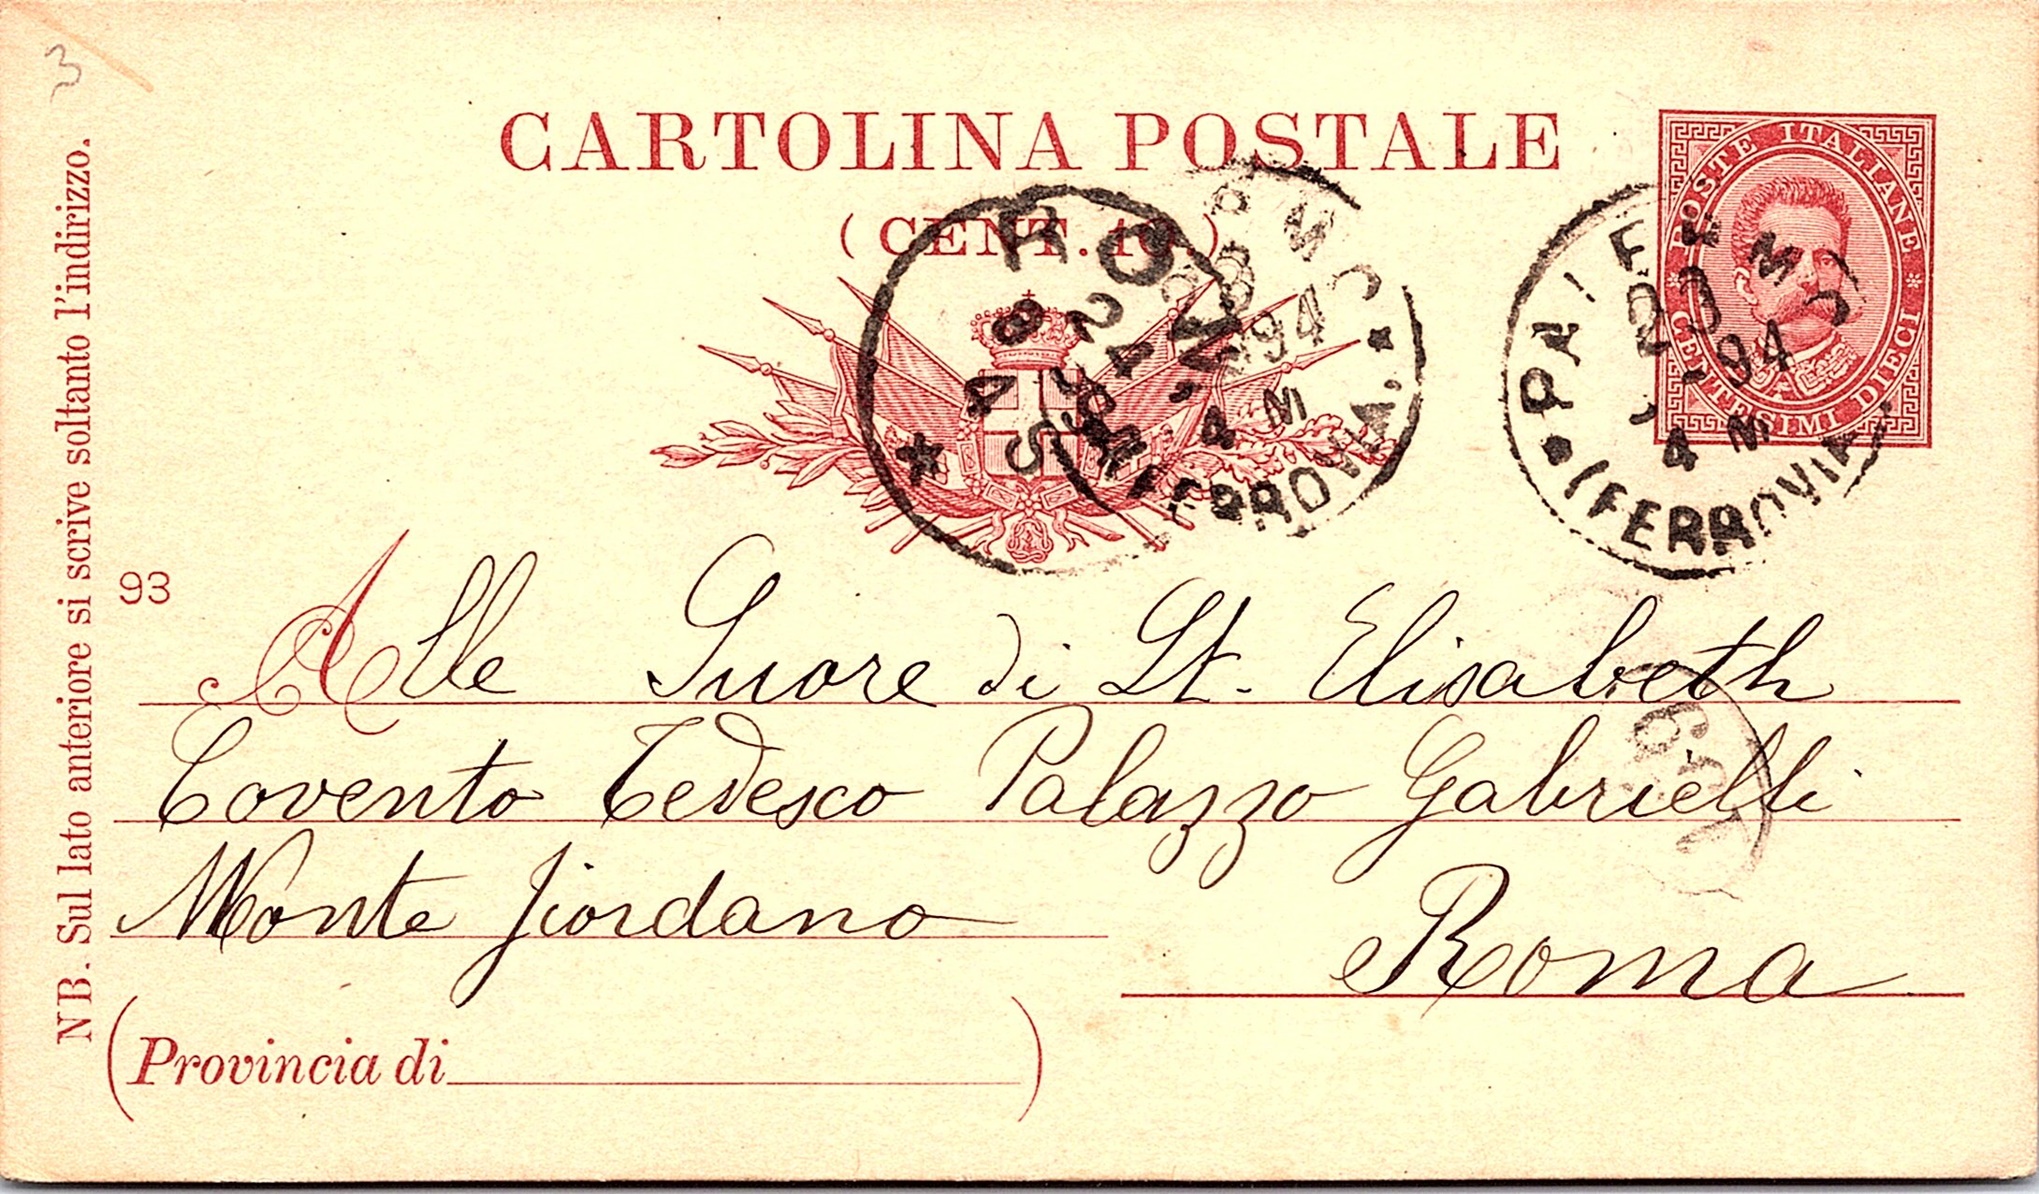 3
CARTOLINA POSTALE
(CENT. 10)
POSTE ITALIANE
CENTESIMI DIECI
ROMA
8 94
24
5S
23
94
4 M
(FERROVIA)
23
94
4 M
(FERROVIA)
NB. Sul lato anteriore si scrive soltanto l'indirizzo.
93
Alle Suore di St. Elisabeth
Covento Tedesco Palazzo Gabrielli
Monte Jiordano
Roma
(Provincia di)